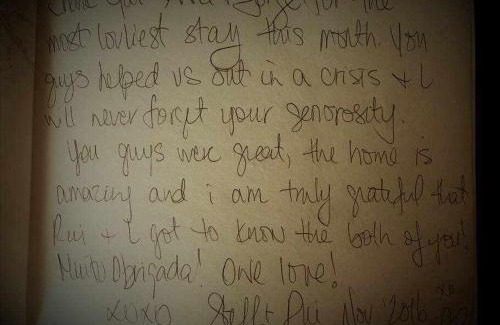 for the
most lovliest stay this month. You
guys helped us out in a crisis + I
will never forget your generosity.
You guys were great, the home is
amazing and i am truly grateful that
Rui + I got to know the both of you!
Muito Obrigada! One love!
XOXO Steff + Rui Nov 2016 xo